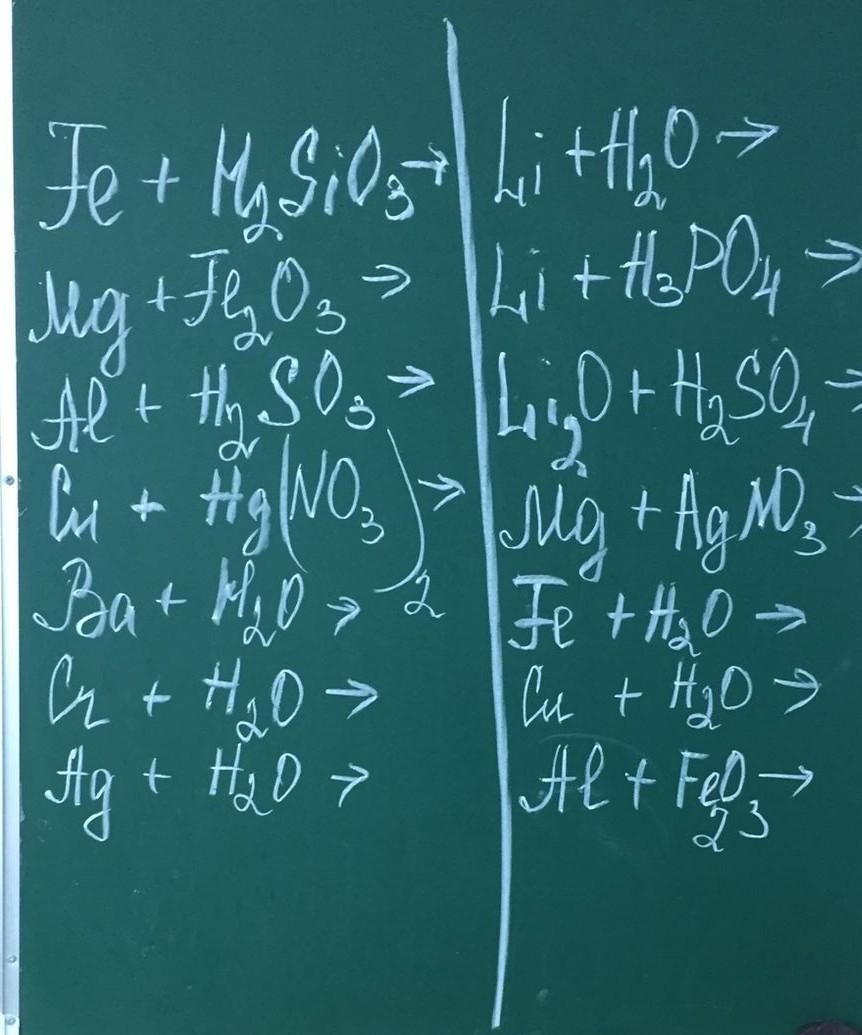 Fe + H₂SiO₃ →
Mg + Fe₂O₃ →
Al + H₂SO₃ →
Cu + Hg(NO₃)₂ →
Ba + H₂O →
Cr + H₂O →
Ag + H₂O →
Li + H₂O →
Li + H₃PO₄ →
Li₂O + H₂SO₄ →
Mg + AgNO₃ →
Fe + H₂O →
Cu + H₂O →
Al + Fe₂O₃ →